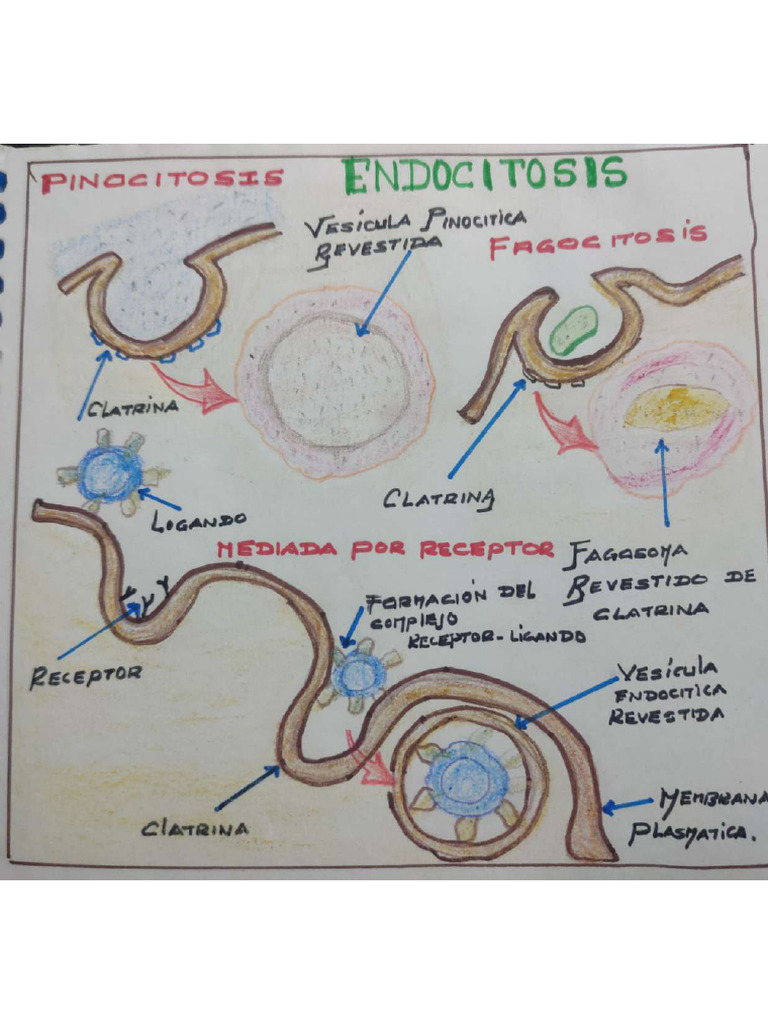 PINOCITOSIS
ENDOCITOSIS
VESÍCULA PINOCITICA
REVESTIDA
FAGOCITOSÍS
CLATRINA
CLATRINA
LIGANDO
MEDIADA POR RECEPTOR
FAGOSOMA
REVESTIDO DE
CLATRINA
FORMACIÓN DEL
COMPLEJO
RECEPTOR-LIGANDO
RECEPTOR
VESÍCULA
ENDOCITICA
REVESTIDA
CLATRINA
MEMBRANA
PLASMATICA.